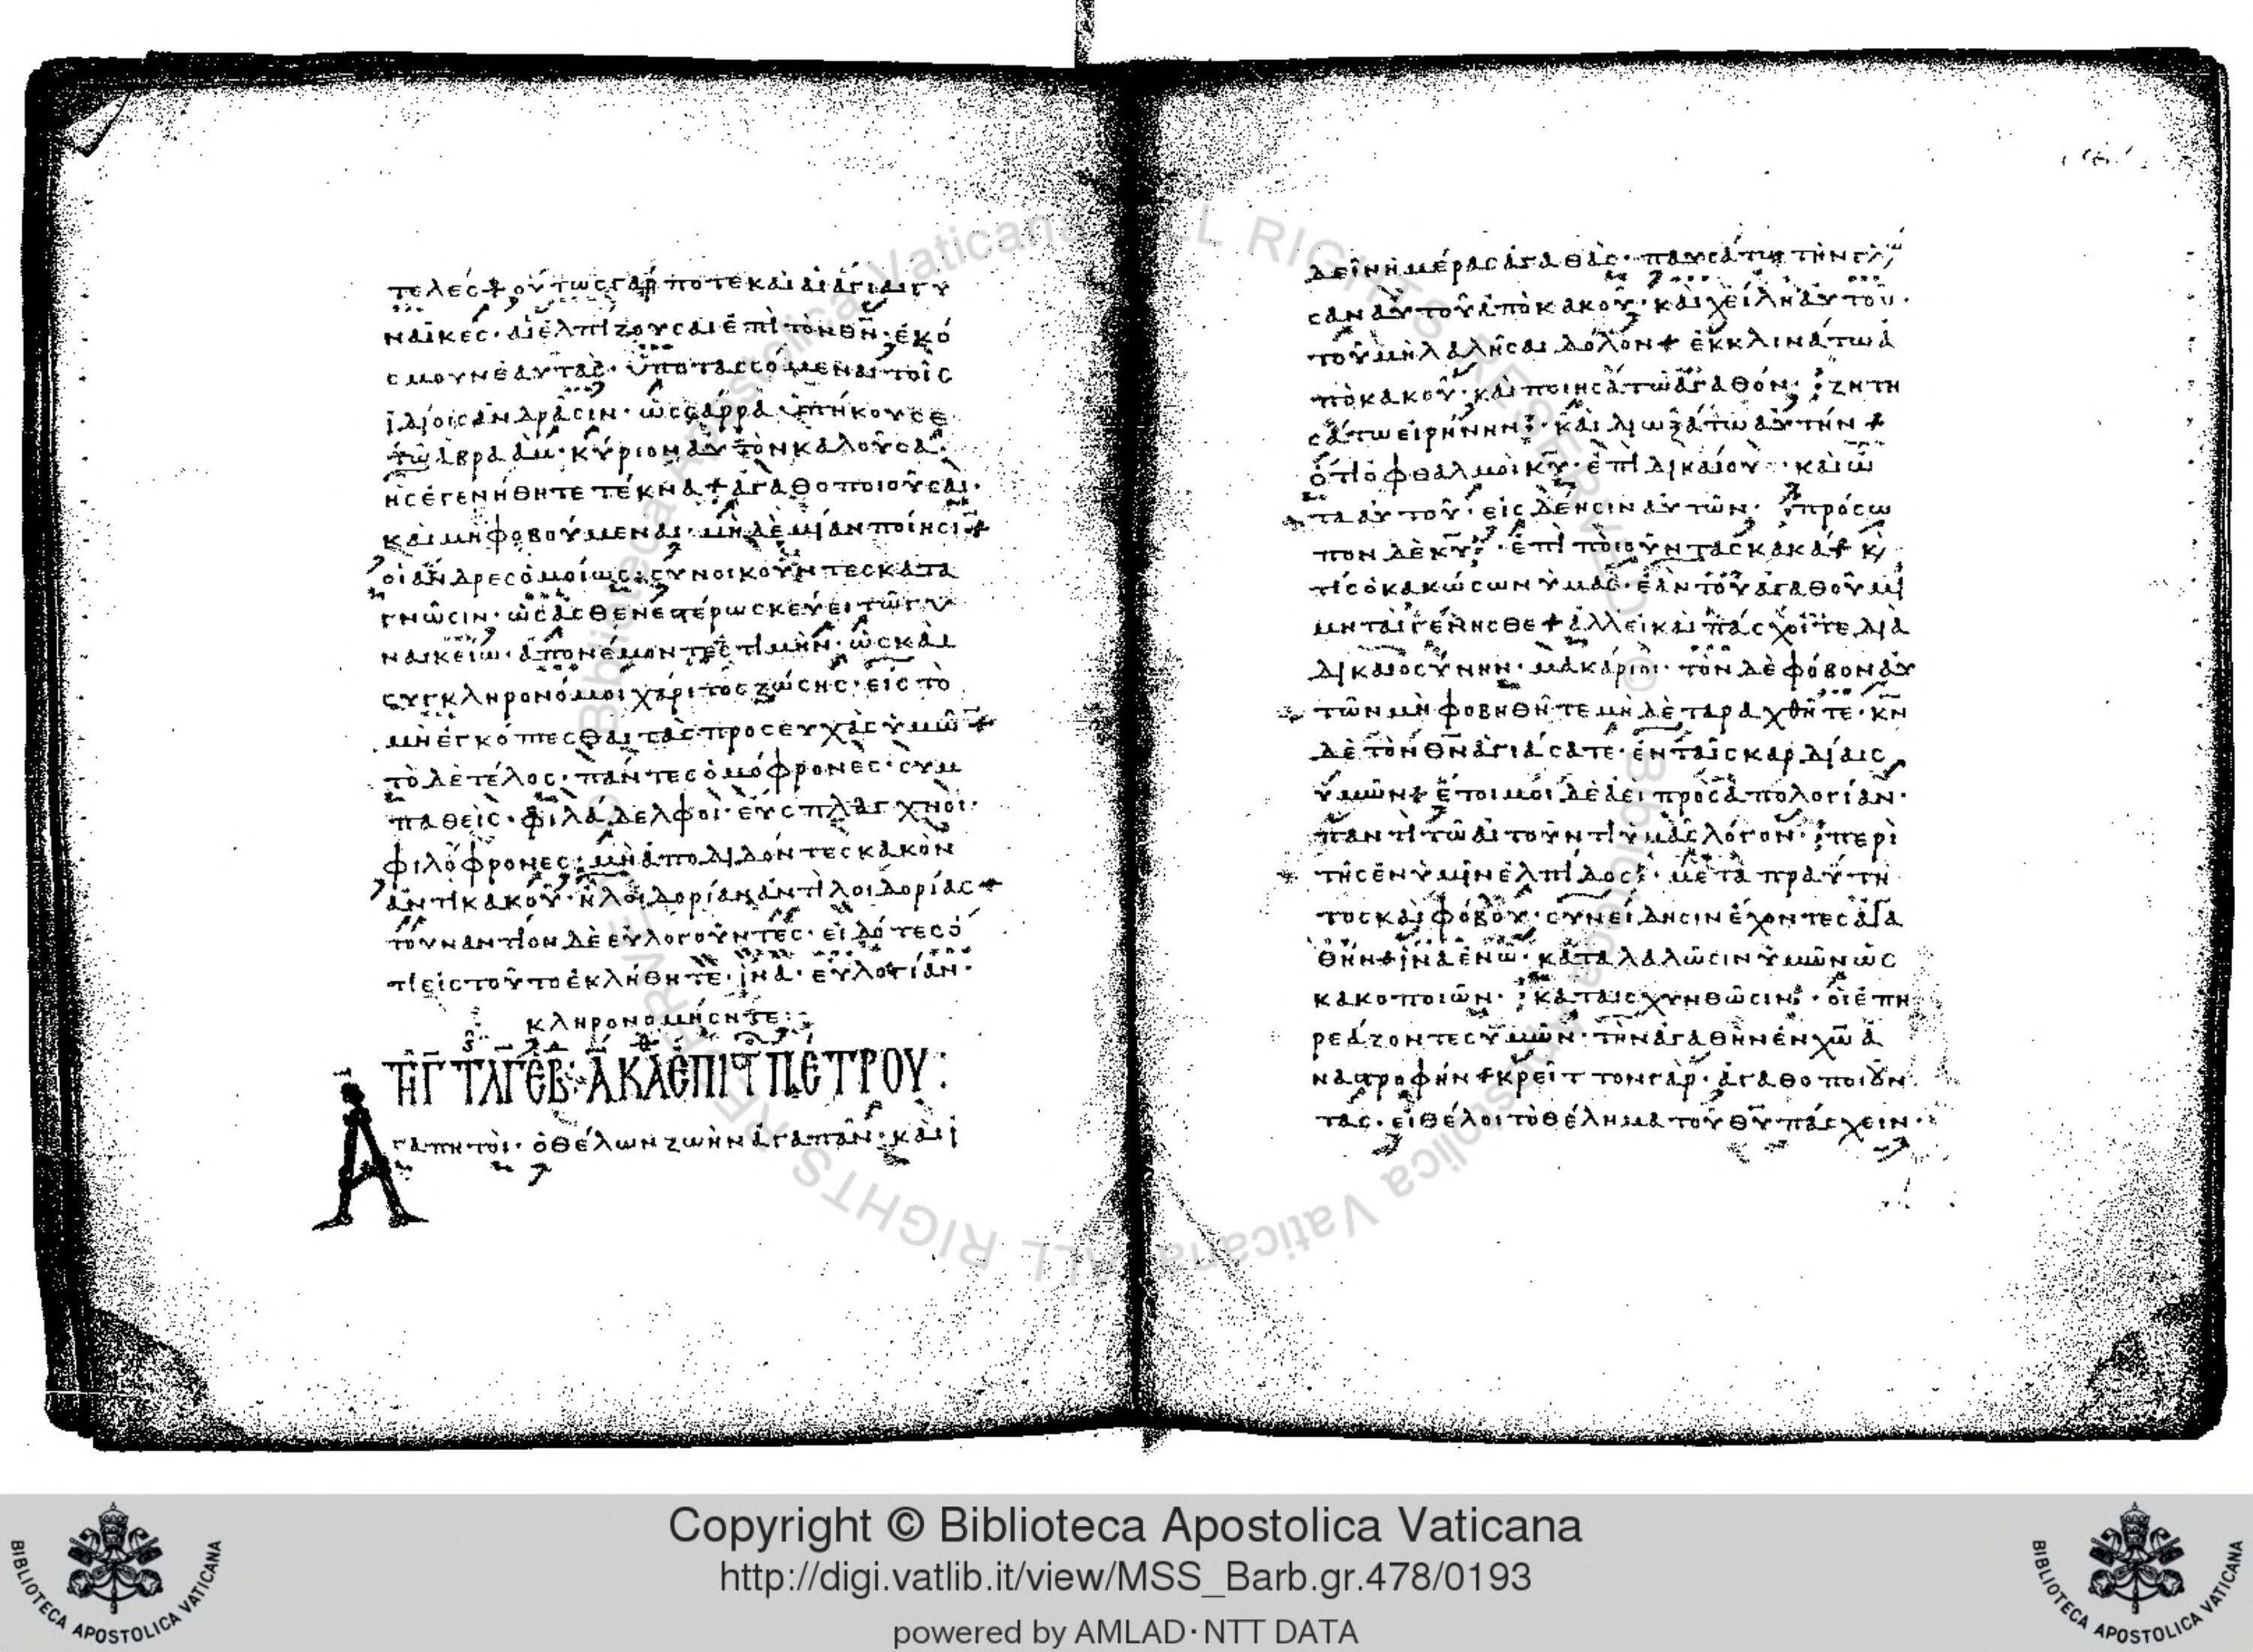 τελές + οὕτως γάρ ποτε καὶ αἱ ἅγιαι γυ
ναῖκες · αἱ ἐλπίζουσαι ἐπὶ τὸν θν · ἐκό
σμουν ἑαυτάς · ὑποτασσόμεναι τοῖς
ἰδίοις ἀνδράσιν · ὡς σάρρα ὑπήκουσε
τῶ ἀβραάμ · κύριον αὐτὸν καλοῦσα ·
ἧς ἐγενήθητε τέκνα + ἀγαθοποιοῦσαι ·
καὶ μὴ φοβούμεναι · μηδὲ μίαν πτοίησι +
οἱ ἄνδρες ὁμοίως · συνοικοῦντες κατα
γνῶσιν · ὡς ἀσθενεστέρω σκεύει τῶ γυ
ναικείω · ἀπονέμοντες τιμὴν · ὡς καὶ
συγκληρονόμοι χάριτος ζωῆς · εἰς τὸ
μὴ ἐγκόπτεσθαι τὰς προσευχὰς ὑμῶ +
τὸ δὲ τέλος · πάντες ὁμόφρονες · συμ
παθεῖς · φιλάδελφοι · εὔσπλαγχνοι ·
φιλόφρονες · μὴ ἀποδιδόντες κακὸν
ἀντὶ κακοῦ · ἢ λοιδορίαν ἀντὶ λοιδορίας +
τοὐναντίον δὲ εὐλογοῦντες · εἰδότες ὅ
τι εἰς τοῦτο ἐκλήθητε · ἵνα · εὐλογίαν ·
κληρονομήσητε :
πέτρου :
Ἀγαπητοὶ · ὁ θέλων ζωὴν ἀγαπᾶν · καὶ ἰ
δεῖν ἡμέρας ἀγαθάς · παυσάτω τὴν γλῶ
σαν αὐτοῦ ἀπὸ κακοῦ · καὶ χείλη αὐτοῦ ·
τοῦ μὴ λαλῆσαι δόλον + ἐκκλινάτω ἀ
πὸ κακοῦ · καὶ ποιησάτω ἀγαθόν · ζητη
σάτω εἰρήνην · καὶ διωξάτω αὐτήν +
ὅτι ὀφθαλμοὶ κυ · ἐπὶ δικαίου · καὶ ὦ
τα αὐτοῦ · εἰς δέησιν αὐτῶν · πρόσω
πον δὲ κυ · ἐπὶ ποιοῦντας κακά + κ
τίς ὁ κακώσων ὑμᾶς · ἐὰν τοῦ ἀγαθοῦ μι
μηταὶ γένησθε + ἀλλ εἰ καὶ πάσχοιτε διὰ
δικαιοσύνην · μακάριοι · τὸν δὲ φόβον αὐ
τῶν μὴ φοβηθῆτε μηδὲ ταραχθῆτε · κν
δὲ τὸν θν ἁγιάσατε · ἐν ταῖς καρδίαις
ὑμῶν + ἕτοιμοι δὲ ἀεὶ πρὸς ἀπολογίαν ·
παντὶ τῶ αἰτοῦντι ὑμᾶς λόγον · περὶ
τῆς ἐν ὑμῖν ἐλπίδος · μετὰ πραΰτη
τος καὶ φόβου · συνείδησιν ἔχοντες ἀγα
θήν + ἵνα ἐν ὧ · καταλαλῶσιν ὑμῶν ὡς
κακοποιῶν · καταισχυνθῶσιν · οἱ ἐπη
ρεάζοντες ὑμῶν · τὴν ἀγαθὴν ἐν χω ἀ
ναστροφήν + κρεῖττον γὰρ · ἀγαθοποιοῦν
τας · εἰ θέλοι τὸ θέλημα τοῦ θυ πάσχειν ·
Copyright © Biblioteca Apostolica Vaticana
http://digi.vatlib.it/view/MSS_Barb.gr.478/0193
powered by AMLAD·NTT DATA
BIBLIOTECA APOSTOLICA VATICANA
BIBLIOTECA APOSTOLICA VATICANA